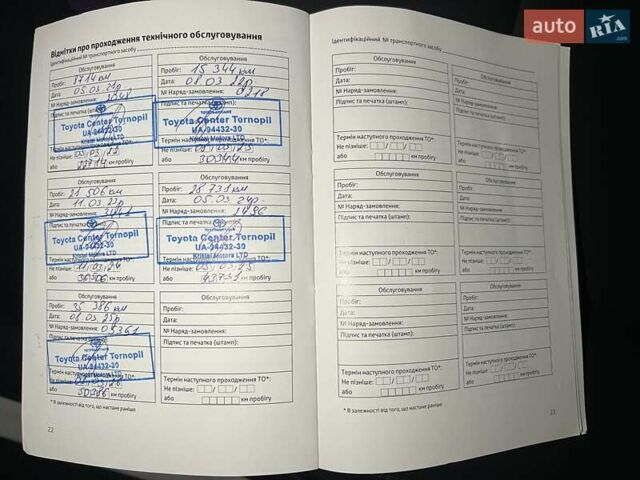 auto RIA.com
Відмітки про проходження технічного обслуговування
Ідентифікаційний № транспортного засобу
Обслуговування
Пробіг: 8714 км
Дата: 05.03.21р
№ Наряд-замовлення:
Підпис та печатка (штамп):
Toyota Center Tornopil
UA-94432-30
Kristal Motors LTD
Не пізніше: 05.03.22
або км пробігу
Обслуговування
Пробіг: 15 344 км
Дата: 01.03.22р
№ Наряд-замовлення:
Toyota Center Tornopil
UA-94432-30
Kristal Motors LTD
Термін наступного проходження ТО*:
Не пізніше:
або 30344 км пробігу
Обслуговування
Пробіг: 21 506 км
Дата: 11.03.23р
№ Наряд-замовлення:
Підпис та печатка (штамп):
Toyota Center Tornopil
UA-94432-30
Kristal Motors LTD
Термін наступного проходження ТО*:
Не пізніше: 11.03.24
або 36506 км пробігу
Обслуговування
Пробіг: 28 731 км
Дата: 05.03.24р.
№ Наряд-замовлення:
Підпис та печатка (штамп):
Toyota Center Tornopil
UA-94432-30
Kristal Motors LTD
Термін наступного проходження ТО*:
Не пізніше: 05.03.25
або 43731 км пробігу
Обслуговування
Пробіг: 35 386 км
Дата:
№ Наряд-замовлення:
Підпис та печатка (штамп):
Toyota Center Tornopil
UA-94432-30
Kristal Motors LTD
Не пізніше:
або 50386 км пробігу
Обслуговування
Пробіг:
Дата:
№ Наряд-замовлення:
Підпис та печатка (штамп):
Термін наступного проходження ТО*:
Не пізніше:
або км пробігу
* В залежності від того, що настане раніше
22
Ідентифікаційний № транспортного засобу
Обслуговування
Пробіг:
Дата:
№ Наряд-замовлення:
Підпис та печатка (штамп):
Термін наступного проходження ТО*:
Не пізніше:
або км пробігу
Обслуговування
Пробіг:
Дата:
№ Наряд-замовлення:
Підпис та печатка (штамп):
Термін наступного проходження ТО*:
Не пізніше:
або км пробігу
Обслуговування
Пробіг:
Дата:
№ Наряд-замовлення:
Підпис та печатка (штамп):
Термін наступного проходження ТО*:
Не пізніше:
або км пробігу
Обслуговування
Пробіг:
Дата:
№ Наряд-замовлення:
Підпис та печатка (штамп):
Термін наступного проходження ТО*:
Не пізніше:
або км пробігу
Обслуговування
Пробіг:
Дата:
№ Наряд-замовлення:
Підпис та печатка (штамп):
Термін наступного проходження ТО*:
Не пізніше:
або км пробігу
Обслуговування
Пробіг:
Дата:
№ Наряд-замовлення:
Підпис та печатка (штамп):
Термін наступного проходження ТО*:
Не пізніше:
або км пробігу
* В залежності від того, що настане раніше
23